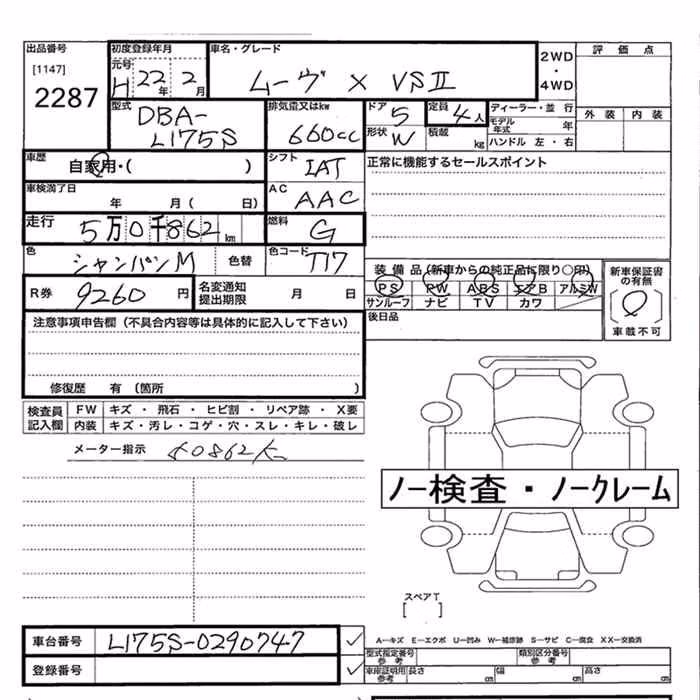 出品番号 [1147] 2287
初度登録年月 元号 H 22年 2月
車名・グレード ムーヴ X VSⅡ
2WD・4WD
評価点
外装 内装
型式 DBA-L175S
排気量又はkw 660cc
ドア 5
形状 W
定員 4人
積載 kg
ディーラー・並行
モデル年式 年
ハンドル 左・右
車歴 自家用・( )
シフト IAT
正常に機能するセールスポイント
車検満了日 年 月 ( 日)
AC AAC
走行 5万0千862km
燃料 G
色 シャンパンM 色替
色コード T17
装備品(新車からの純正品に限り○印)
PS PW ABS エアB アルミW
サンルーフ ナビ TV カワ
新車保証書の有無
車載不可
R券 9260円
名変通知提出期限 月 日
後日品
注意事項申告欄(不具合内容等は具体的に記入して下さい)
修復歴 有 (箇所 )
検査員記入欄
FW キズ・飛石・ヒビ割・リペア跡・X要
内装 キズ・汚レ・コゲ・穴・スレ・キレ・破レ
メーター指示 50862K
ノー検査・ノークレーム
スペアT
[ ]
車台番号 L175S-0290747
登録番号
A-キズ E-エクボ U-凹み W-補修跡 S-サビ C-腐食 XX-交換済
型式指定番号 参考
類別区分番号 参考
車庫証明用 参考 長さ cm 幅 cm 高さ cm